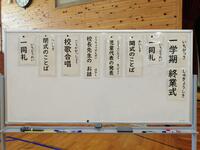 一学期 終業式
・一同礼
・開式のことば
・児童代表の発表
・校長先生の お話
・校歌合唱
・閉式のことば
・一同礼